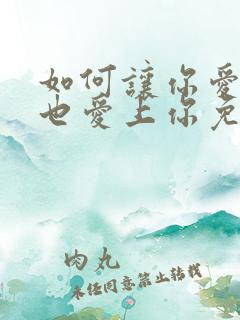 如何讓你愛
也愛上你免
肉丸
未经同意禁止转载